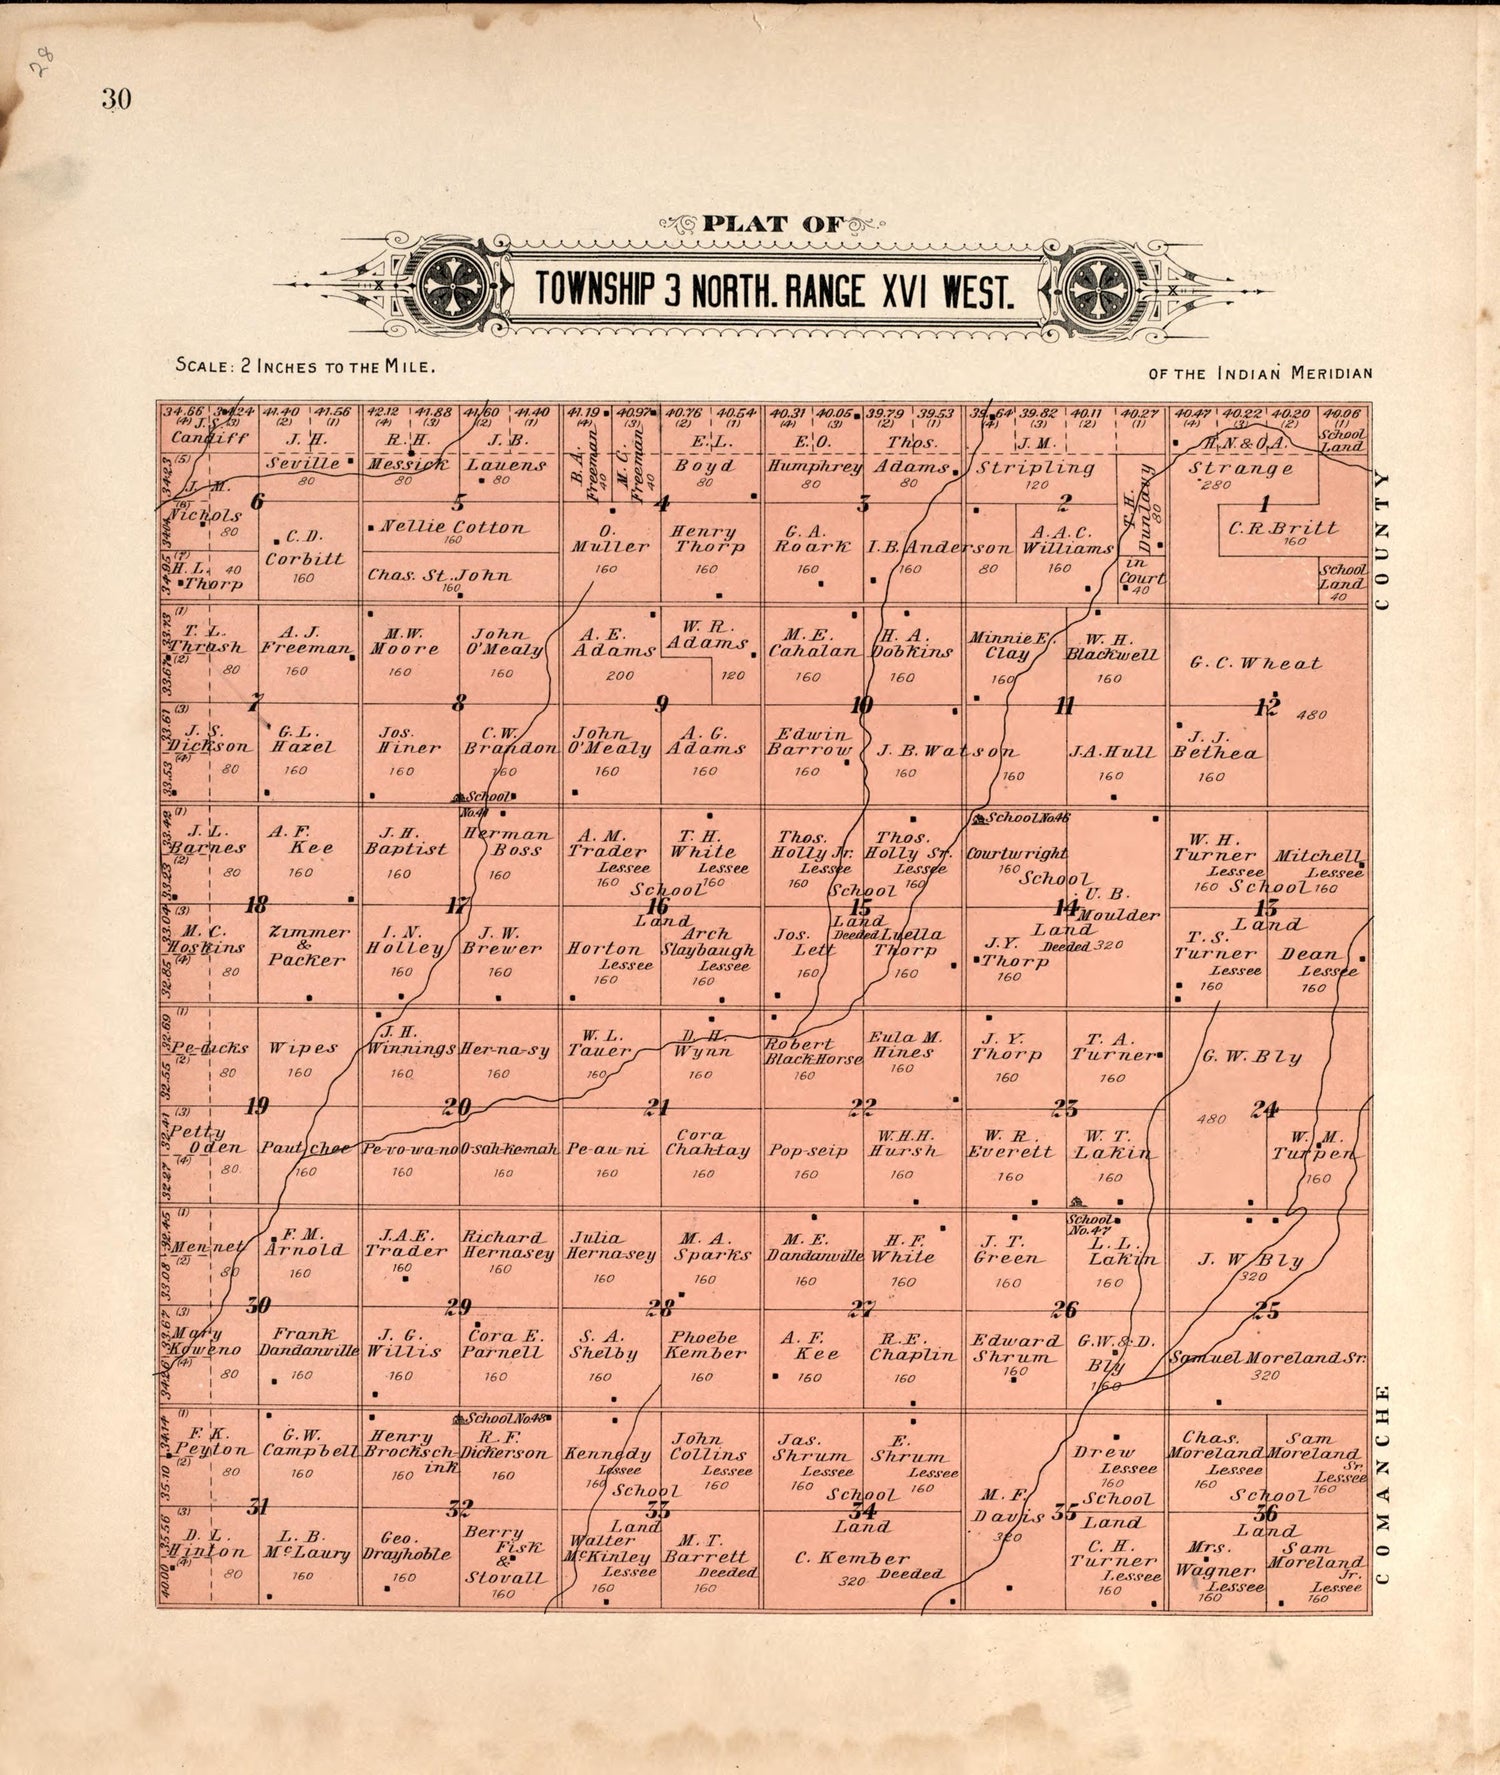 28
30
PLAT OF
TOWNSHIP 3 NORTH. RANGE XVI WEST.
SCALE: 2 INCHES TO THE MILE.
OF THE INDIAN MERIDIAN
34.66 34.24 41.40 41.56 42.12 41.88 41.60 41.40 41.19 40.97 40.76 40.54 40.31 40.05 39.79 39.53 39.64 39.82 40.11 40.27 40.47 40.22 40.20 40.06
J. S.
Candiff
J. H.
Seville
80
R. H.
Messick
80
J. B.
Lauens
80
B. A.
Freeman
40
M. C.
Freeman
40
E. L.
Boyd
80
E. O.
Humphrey
80
Thos.
Adams
80
J. M.
Stripling
120
T. H.
Dunlavy
80
H. N. & O. A.
Strange
280
School
Land
J. M.
Nichols
80
6
5
4
3
2
1
H. L. 40
Thorp
C. D.
Corbitt
160
Nellie Cotton
160
Chas. St. John
160
O.
Muller
160
Henry
Thorp
160
G. A.
Roark
160
I. B. Anderson
160
80
A. A. C.
Williams
160
in
Court
40
C. R. Britt
160
School
Land
40
COUNTY
T. L.
Thrash
80
A. J.
Freeman
160
M. W.
Moore
160
John
O'Mealy
160
A. E.
Adams
200
W. R.
Adams
120
M. E.
Cahalan
160
H. A.
Dobkins
160
Minnie E.
Clay
160
W. H.
Blackwell
160
G. C. Wheat
480
7
8
9
10
11
12
J. S.
Dickson
80
G. L.
Hazel
160
Jos.
Hiner
160
C. W.
Brandon
160
John
O'Mealy
160
A. G.
Adams
160
Edwin
Barrow
160
J. B. Watson
160
160
J. A. Hull
160
J. J.
Bethea
160
School
No. 41
School No 46
J. L.
Barnes
80
A. F.
Kee
160
J. H.
Baptist
160
Herman
Boss
160
A. M.
Trader
Lessee
160
T. H.
White
Lessee
160
School
Thos.
Holly Jr.
Lessee
160
Thos.
Holly Sr.
Lessee
160
School
Courtwright
160
School
U. B.
Moulder
Deeded 320
W. H.
Turner
Lessee
160
Mitchell
Lessee
160
School
18
17
16
15
14
13
M. C.
Hoskins
80
Zimmer
&
Packer
I. N.
Holley
160
J. W.
Brewer
160
Land
Horton
Lessee
160
Arch
Slaybaugh
Lessee
160
Land
Deeded
Jos.
Lett
160
Luella
Thorp
160
Land
J. Y.
Thorp
160
Land
T. S.
Turner
Lessee
160
Dean
Lessee
160
Pe-dicks
80
Wipes
160
J. H.
Winnings
160
Her-na-sy
160
W. L.
Tauer
160
D. H.
Wynn
160
Robert
Black Horse
160
Eula M.
Hines
160
J. Y.
Thorp
160
T. A.
Turner
160
G. W. Bly
480
19
20
21
22
23
24
Petty
Oden
80
Paut chee
160
Pe-vo-wa-no
160
O-sah-ke-mah
160
Pe-au-ni
160
Cora
Chahtay
160
Pop-seip
160
W. H. H.
Hursh
160
W. R.
Everett
160
W. T.
Lakin
160
W. M.
Turpen
160
Mennet
80
F. M.
Arnold
160
J. A. E.
Trader
160
Richard
Hernasey
160
Julia
Herna-sey
160
M. A.
Sparks
160
M. E.
Dandanville
160
H. F.
White
160
J. T.
Green
160
School
No. 47
L. L.
Lakin
160
J. W. Bly
320
30
29
28
27
26
25
Mary
Koweno
80
Frank
Dandanville
160
J. G.
Willis
160
Cora E.
Parnell
160
S. A.
Shelby
160
Phoebe
Kember
160
A. F.
Kee
160
R. E.
Chaplin
160
Edward
Shrum
160
G. W. & D.
Bly
160
Samuel Moreland Sr.
320
School No 48
F. K.
Peyton
80
G. W.
Campbell
160
Henry
Brocksch-
ink
160
R. F.
Dickerson
160
Kennedy
Lessee
160
School
John
Collins
Lessee
160
Jas.
Shrum
Lessee
160
School
E.
Shrum
Lessee
160
M. F.
Davis
320
Drew
Lessee
160
School
Chas.
Moreland
Lessee
160
School
Sam
Moreland
Sr.
Lessee
160
31
32
33
34
35
36
D. L.
Hinton
80
L. B.
McLaury
160
Geo.
Drayhoble
160
Berry
Fisk
&
Stovall
160
Land
Walter
McKinley
Lessee
160
M. T.
Barrett
Deeded
160
Land
C. Kember
320 Deeded
Land
C. H.
Turner
Lessee
160
Land
Mrs.
Wagner
Lessee
160
Sam
Moreland
Jr.
Lessee
160
COMANCHE